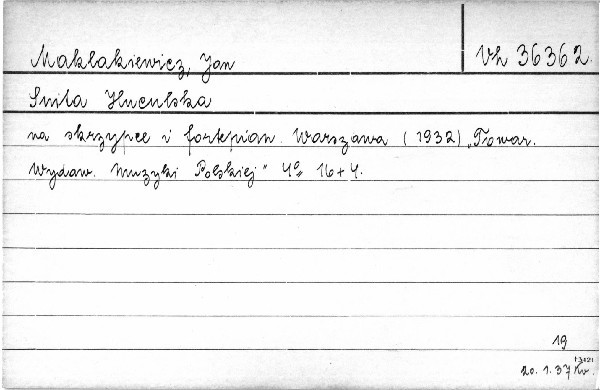 Maklakiewicz, Jan
Vh 36362.
Suita Huculska
na skrzypce i fortepian. Warszawa (1932) „Towar.
Wydaw. Muzyki Polskiej" 4° 16+4.
19
20. 1. 37 Kw.